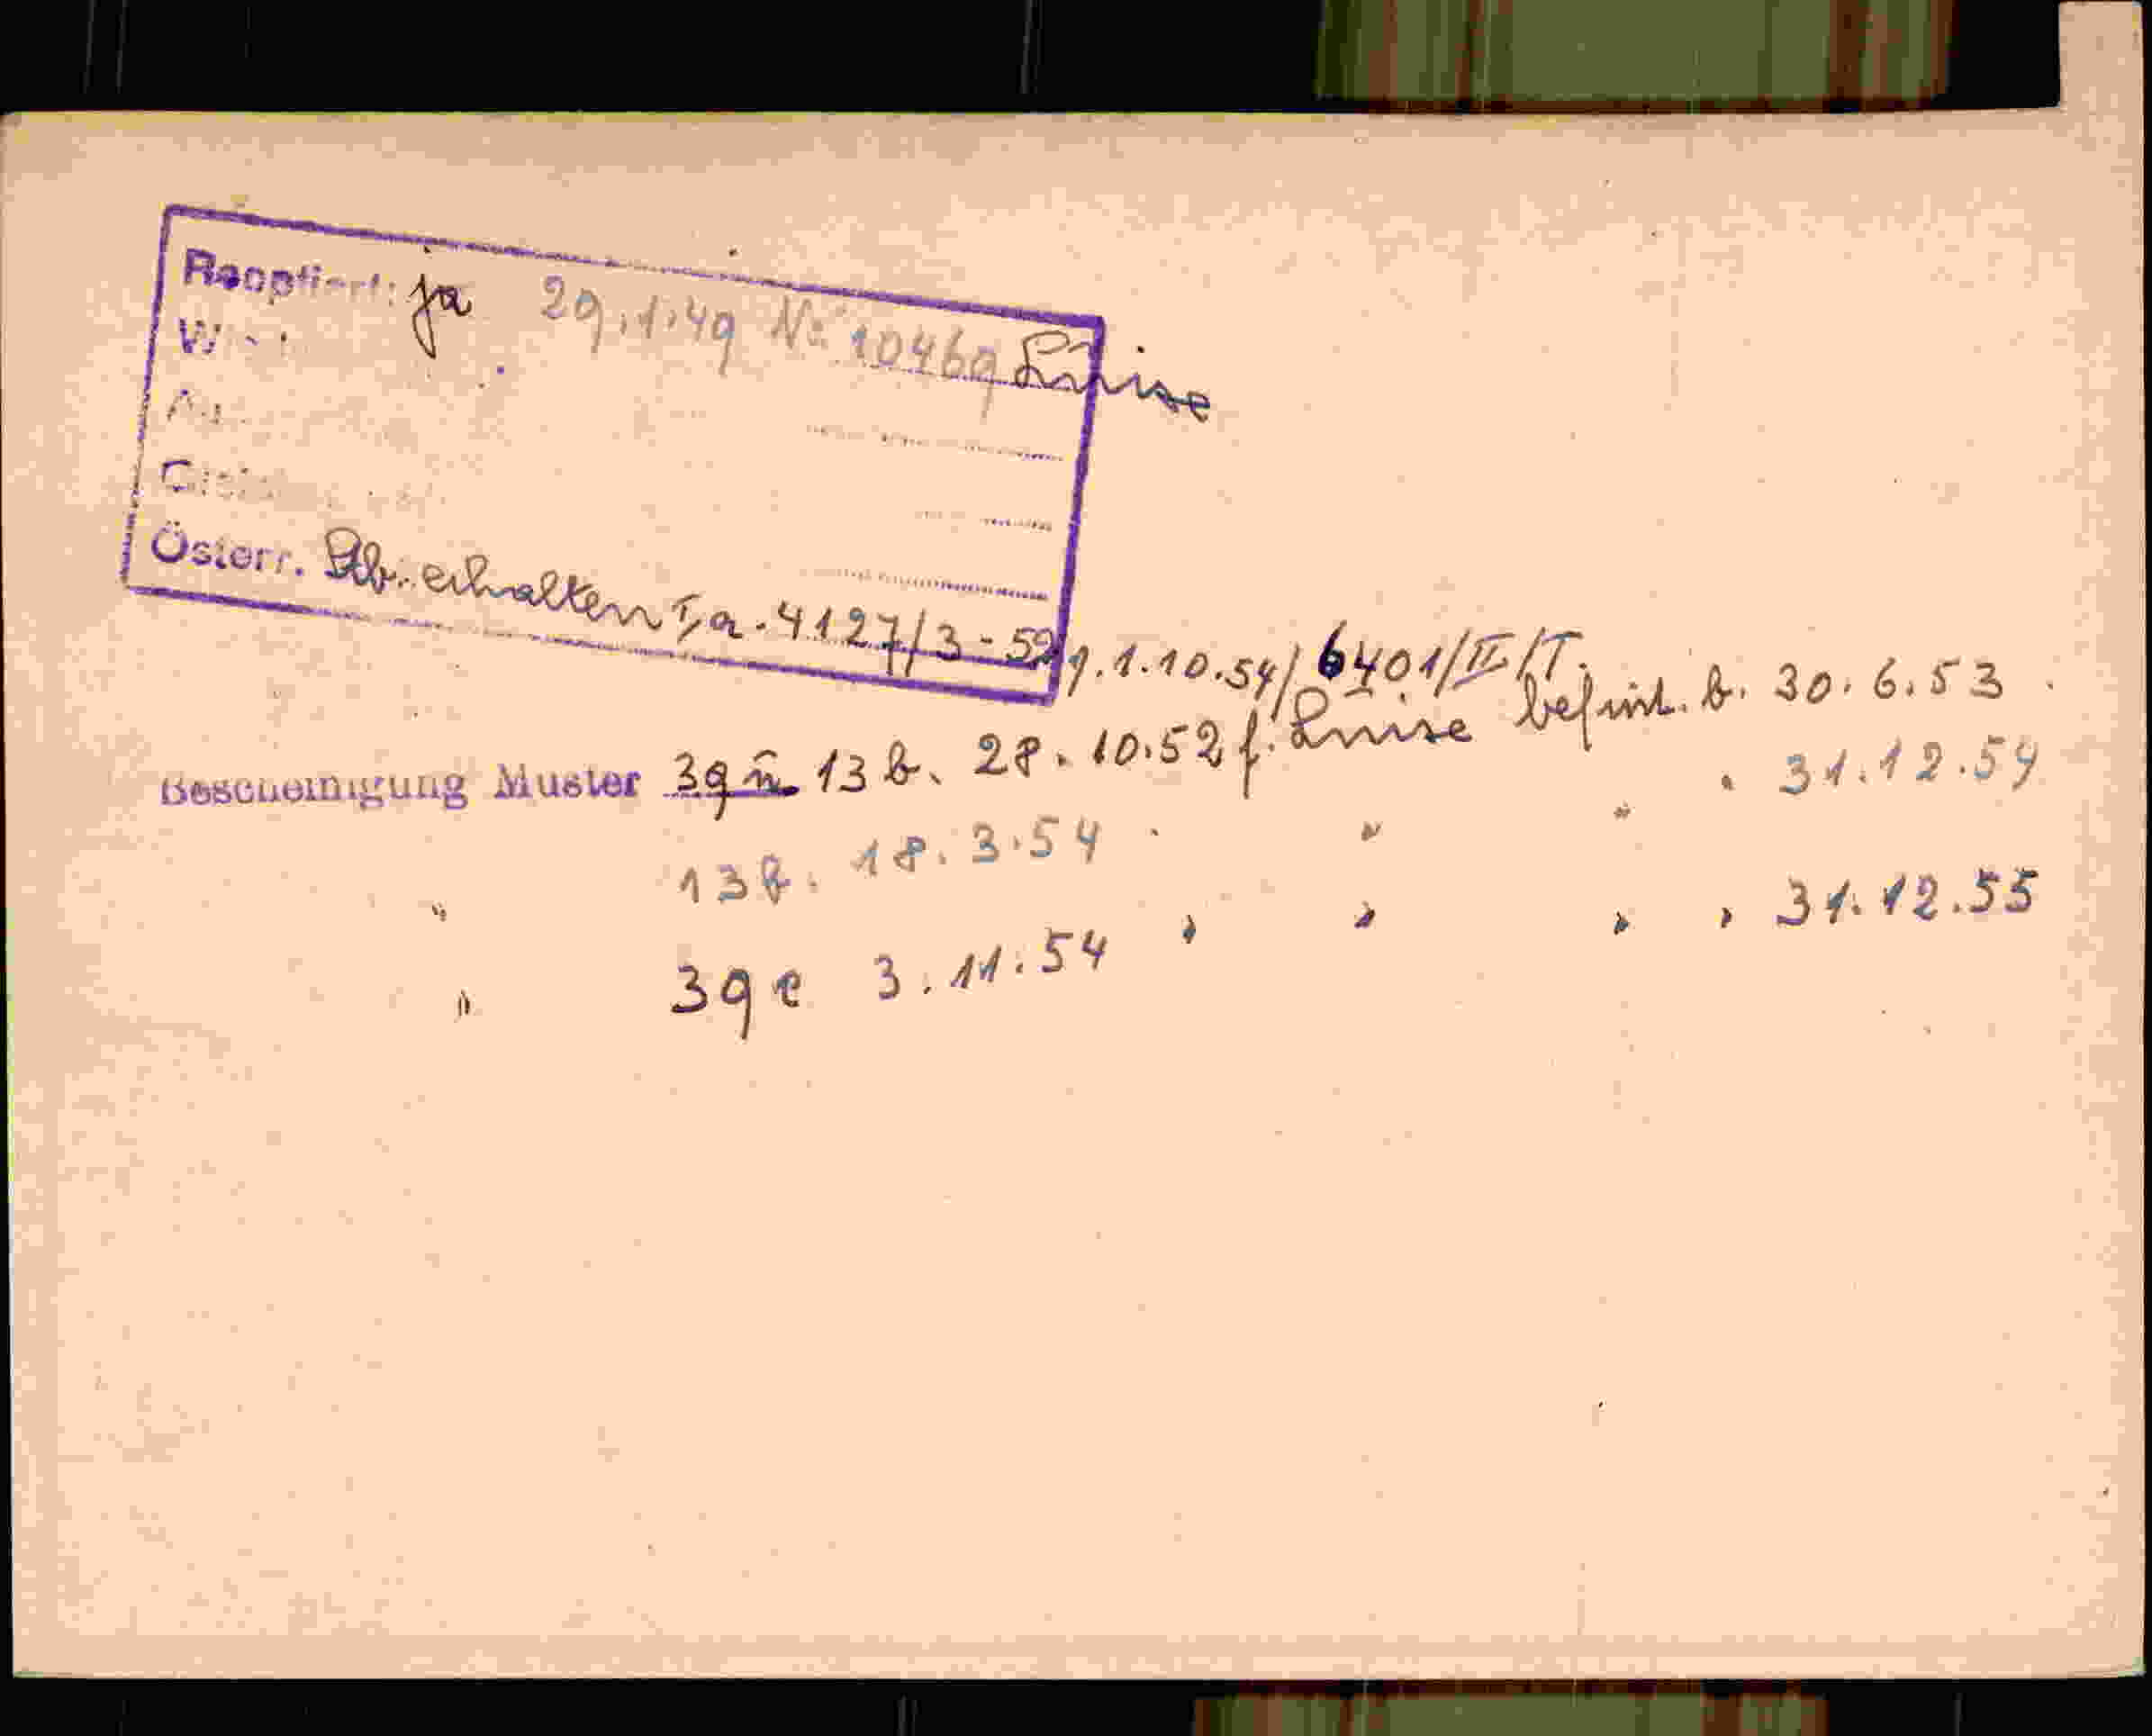 Reoptiert: ja 29.1.49 Nr. 10469 Luise
Österr. Stb. erhalten I/a. 4127/3-52 v. 1.10.54/ 6401/II/T.
Bescheinigung Muster 39 u. 13 b. 28.10.52 f. Luise befrist. b. 30.6.53.
" 13 b. 18.3.54 " " " " 31.12.54
" 39 e 3.11.54 " " " " 31.12.55